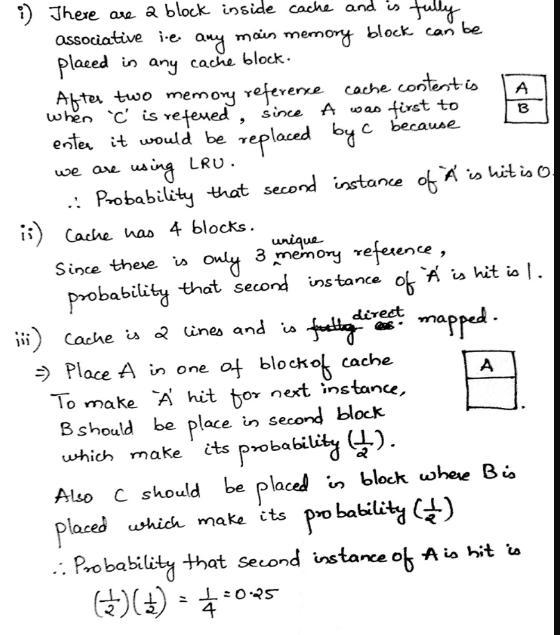 i) There are 2 block inside cache and is fully
associative i.e any main memory block can be
placed in any cache block.
After two memory reference cache content is
when 'C' is refered, since A was first to
enter it would be replaced by C because
we are using LRU.
∴ Probability that second instance of 'A' is hit is 0.
A
B
ii) Cache has 4 blocks.
Since there is only 3 unique memory reference,
probability that second instance of 'A' is hit is 1.
iii) Cache is 2 lines and is direct mapped.
⇒ Place A in one of block of cache
To make 'A' hit for next instance,
B should be place in second block
which make its probability (1/2).
A
Also C should be placed in block where B is
placed which make its probability (1/2)
∴ Probability that second instance of A is hit is
(1/2)(1/2) = 1/4 = 0.25